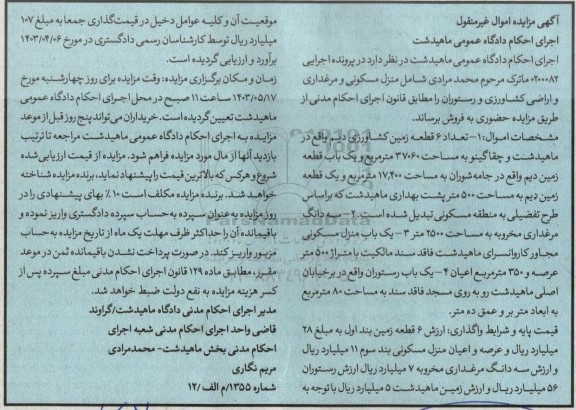 آگهی مزایده اموال غیرمنقول
اجرای احکام دادگاه عمومی ماهیدشت
اجرای احکام دادگاه عمومی ماهیدشت در نظر دارد در پرونده اجرایی
۰۲۰۰۰۸۲ ماترک مرحوم محمد مرادی شامل منزل مسکونی و مرغداری
و اراضی کشاورزی و رستوران را مطابق قانون اجرای احکام مدنی از
طریق مزایده حضوری به فروش برساند.
مشخصات اموال: ۱- تعداد ۶ قطعه زمین کشاورزی دیم واقع در
ماهیدشت و چقاگینو به مساحت ۳۷۰۶۰ مترمربع و یک باب قطعه
زمین دیم واقع در جامه‌شوران به مساحت ۱۷,۴۰۰ مترمربع و یک قطعه
زمین دیم به مساحت ۵۰۰ متر پشت بهداری ماهیدشت که براساس
طرح تفصیلی به منطقه مسکونی تبدیل شده است ۲- سه دانگ
مرغداری مخروبه به مساحت ۲۵۰۰ متر ۳- یک باب منزل مسکونی
مجاور کاروانسرای ماهیدشت فاقد سند مالکیت با متراژ ۵۰۰ متر
عرصه و ۳۵۰ مترمربع اعیان ۴- یک باب رستوران واقع در برخیابان
اصلی ماهیدشت رو به روی مسجد فاقد سند به مساحت ۸۰ مترمربع
به ابعاد متر بر و عمق ده متر.
قیمت پایه و شرایط واگذاری: ارزش ۶ قطعه زمین بند اول به مبلغ ۲۸
میلیارد ریال و عرصه و اعیان منزل مسکونی بند سوم ۱۱ میلیارد ریال
و ارزش سه دانگ مرغداری مخروبه ۷ میلیارد ریال ارزش رستوران
۵۶ میلیارد ریال و ارزش زمین ماهیدشت ۵ میلیارد ریال با توجه به
موقعیت آن و کلیه عوامل دخیل در قیمت‌گذاری جمعا به مبلغ ۱۰۷
میلیارد ریال توسط کارشناسان رسمی دادگستری در مورخ ۱۴۰۳/۰۴/۰۶
برآورد و ارزیابی گردیده است.
زمان و مکان برگزاری مزایده: وقت مزایده برای روز چهارشنبه مورخ
۱۴۰۳/۰۵/۱۷ ساعت ۱۱ صبح در محل اجرای احکام دادگاه عمومی
ماهیدشت تعیین گردیده است. خریداران می‌تواند پنج روز قبل از موعد
مزایده به اجرای احکام دادگاه عمومی ماهیدشت مراجعه تا ترتیب
بازدید آنها از مال مورد مزایده فراهم شود. مزایده از قیمت ارزیابی شده
شروع و هرکس که بالاترین قیمت را پیشنهاد نماید، برنده مزایده شناخته
خواهد شد. برنده مزایده مکلف است ۱۰٪ بهای پیشنهادی را در
روز مزایده به عنوان سپرده به حساب سپرده دادگستری واریز نموده و
باقیمانده آن را حداکثر ظرف مهلت یک ماه از تاریخ مزایده به حساب
مزبور واریز کند. در صورت پرداخت نشدن باقیمانده ثمن در موعد
مقرر، مطابق ماده ۱۲۹ قانون اجرای احکام مدنی مبلغ سپرده پس از
کسر هزینه مزایده به نفع دولت ضبط خواهد شد.
مدیر اجرای احکام مدنی دادگاه ماهیدشت/گراوند
قاضی واحد اجرای احکام مدنی شعبه اجرای
احکام مدنی بخش ماهیدشت- محمدمرادی
مریم نگاری
شماره ۱۳۵۵/م الف /۱۲
ParsNamadData